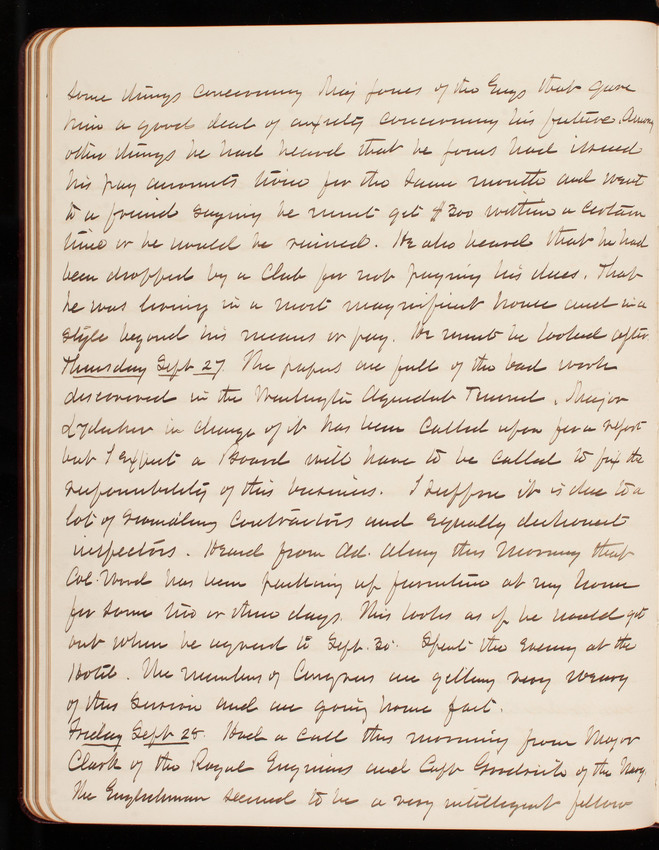 some things concerning Maj Jones of the Engs that gave
him a good deal of anxiety concerning his future. Among
other things he had heard that he Jones had issued
his pay accounts twice for the same month and went
to a friend saying he must get $300 within a certain
time or he would be ruined. He also heard that he had
been dropped by a Club for not paying his dues. That
he was living in a most magnificent house and in a
style beyond his means or pay. He must be looked after.
Thursday Sept 27 The papers are full of the bad work
discovered in the Washington Aqueduct Tunnel. Major
Lydecker in charge of it has been called upon for a report
but I expect a Board will have to be called to fix the
responsibility of this business. I suppose it is due to a
lot of scoundrely contractors and equally dishonest
inspectors. Heard from Ad. Alony this morning that
Col. Ward has been packing up furniture at my house
for some two or three days. This looks as if he would get
out when he agreed to Sept. 30. Spent the evening at the
Hotel. The members of Congress are getting very weary
of this Session and are going home fast.
Friday Sept 28. Had a call this morning from Major
Clark of the Royal Engineers and Capt Goodrich of the Navy.
The Englishman seemed to be a very intelligent fellow